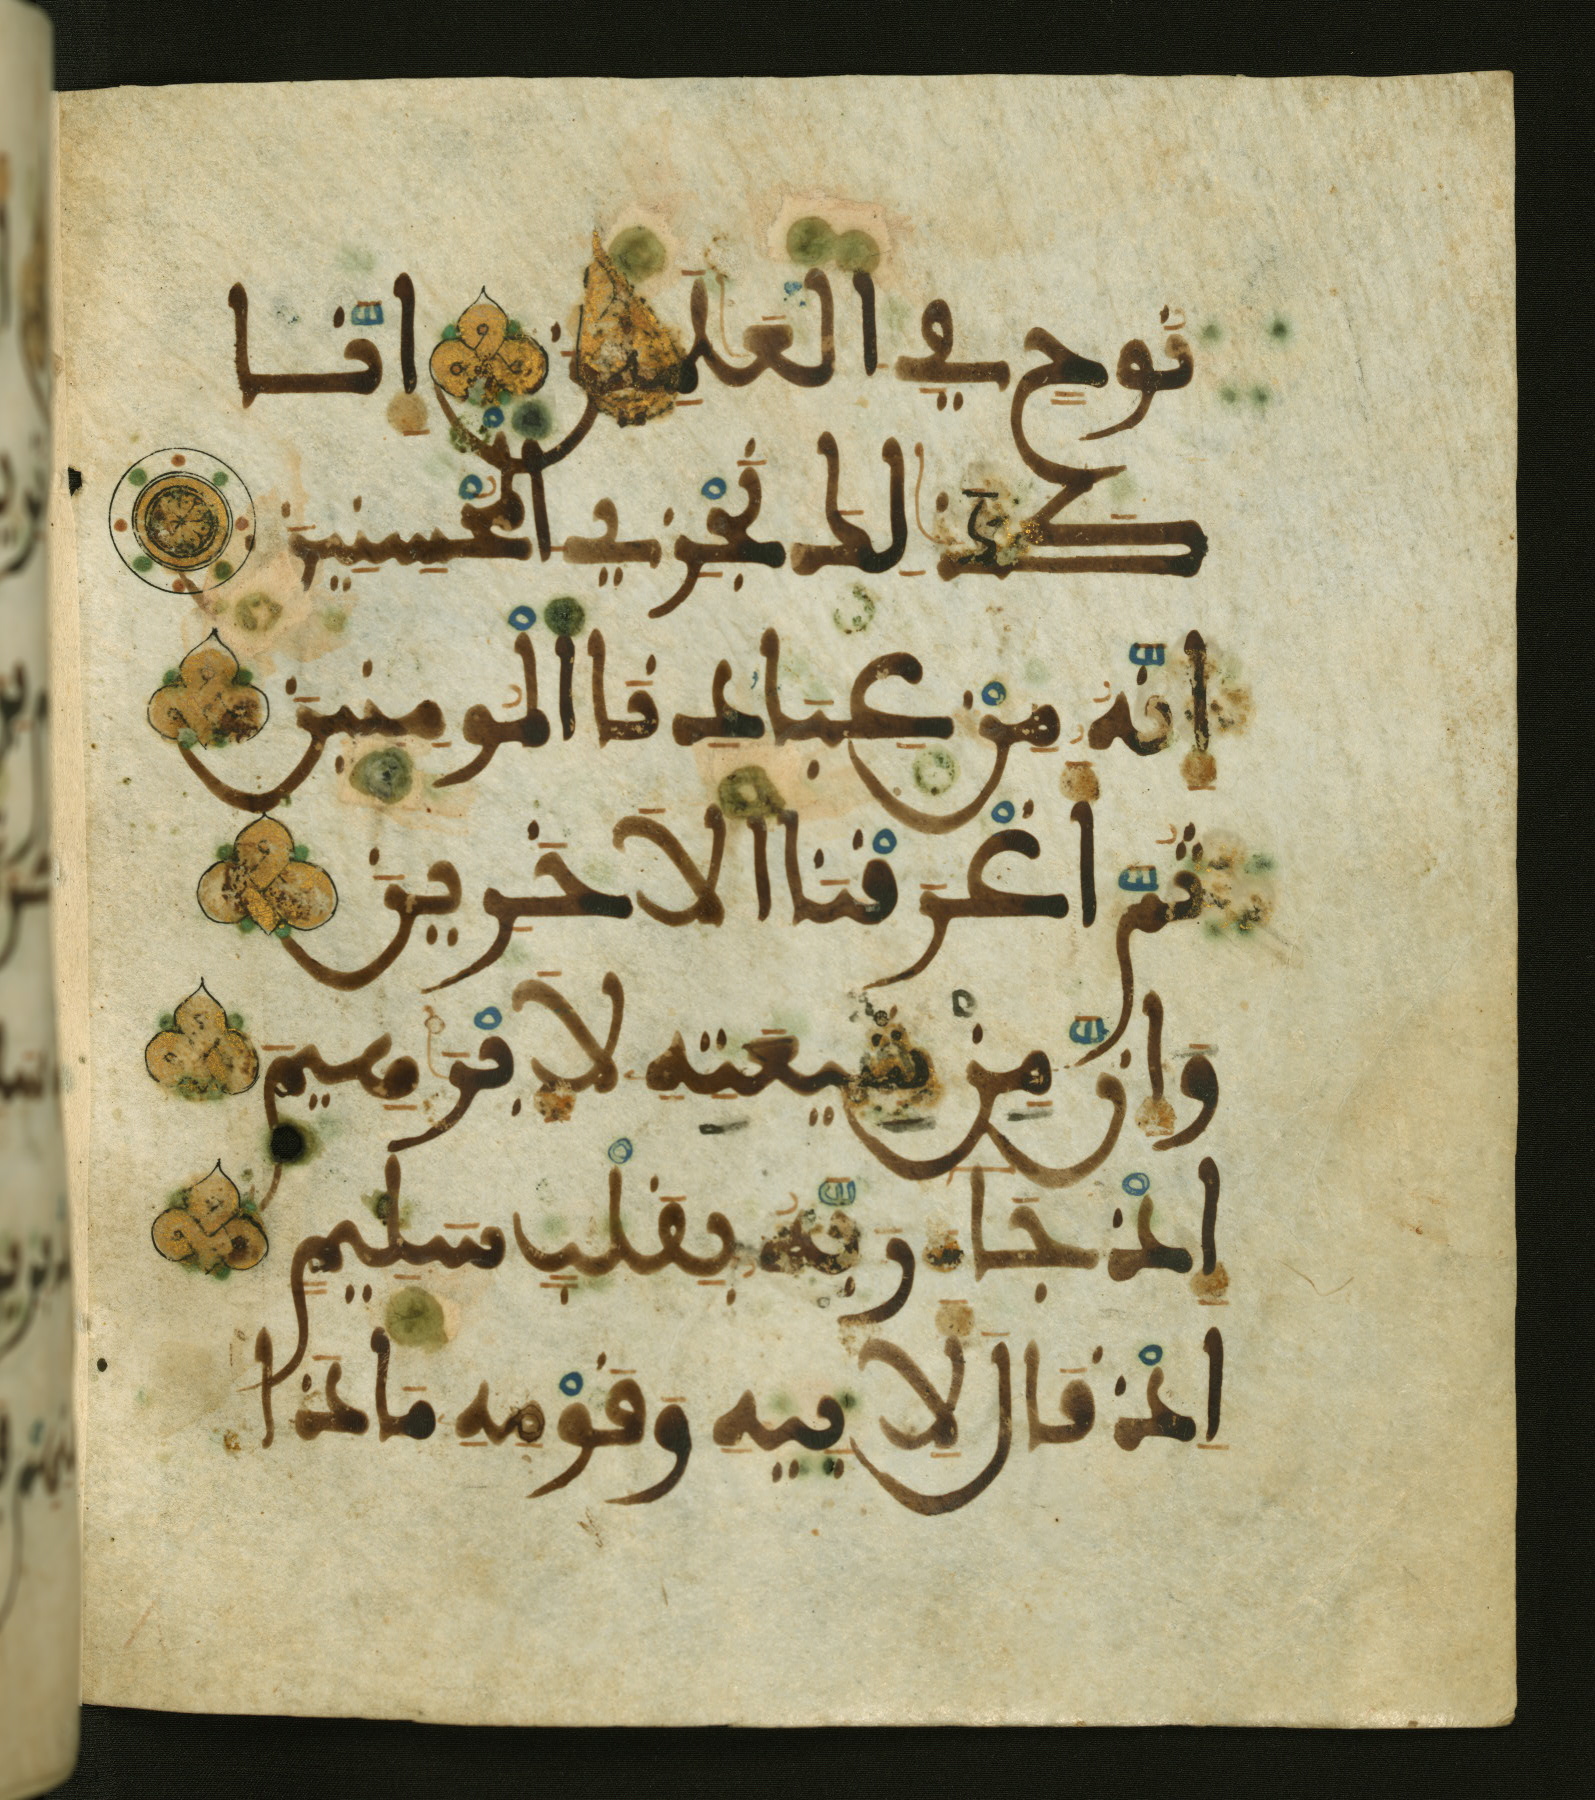 نُوحٍ فِي الْعَٰلَمِينَ إِنَّا
كَذَٰلِكَ نَجْزِي الْمُحْسِنِينَ
إِنَّهُ مِنْ عِبَادِنَا الْمُومِنِينَ
ثُمَّ أَغْرَقْنَا الَاخَرِينَ
وَإِنَّ مِنْ شِيعَتِهِ لَإِبْرَٰهِيمَ
إِذْ جَاءَ رَبَّهُ بِقَلْبٍ سَلِيمٍ
إِذْ قَالَ لِأَبِيهِ وَقَوْمِهِ مَاذَا